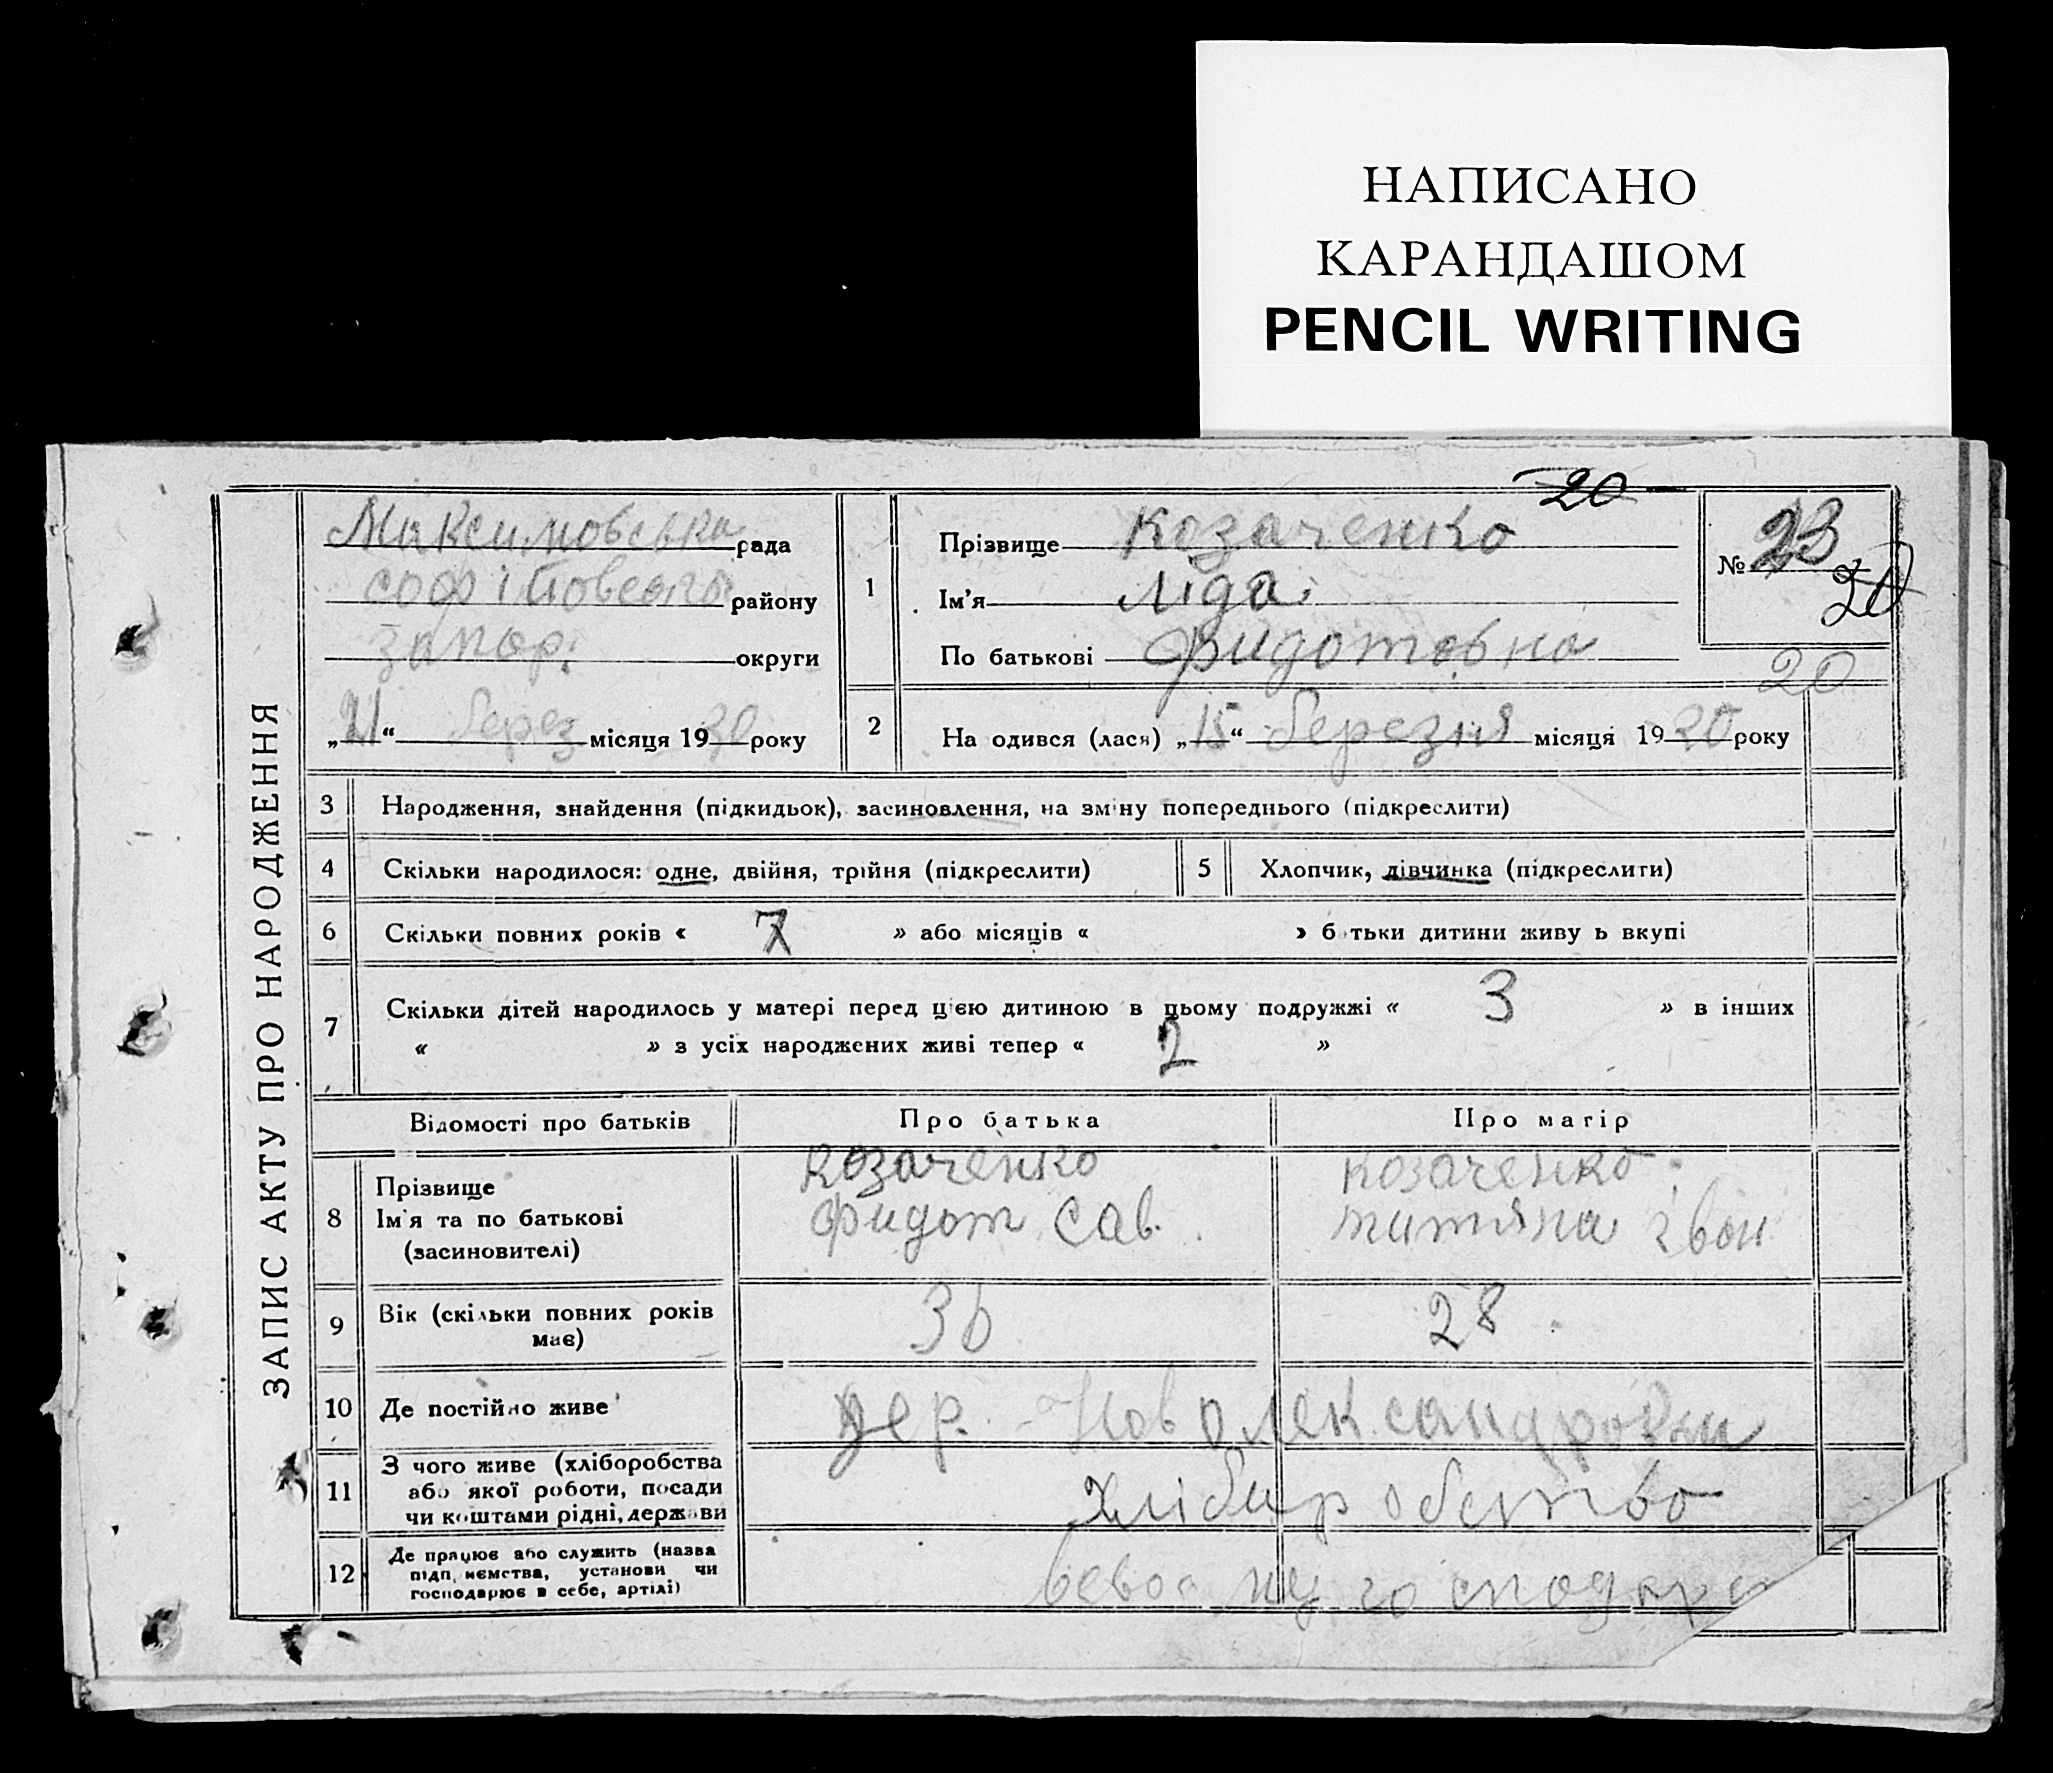 НАПИСАНО
КАРАНДАШОМ
PENCIL WRITING
ЗАПИС АКТУ ПРО НАРОДЖЕННЯ
Максимовська рада
району
Запор. округи
„21“ берез місяця 1930 року
20
№ 23
20
20
1 Прізвище Козаченко
Ім'я Ліда
По батькові Фидотовна
2 На одився (лася) „15“ березня місяця 19 року
3 Народження, знайдення (підкидьок), засиновлення, на зміну попереднього (підкреслити)
4 Скільки народилося: одне, двійня, трійня (підкреслити)
5 Хлопчик, дівчинка (підкреслити)
6 Скільки повних років « 7 » або місяців « » б тьки дитини живу ь вкупі
7 Скільки дітей народилось у матері перед цією дитиною в цьому подружжі « 3 » в інших
« » з усіх народжених живі тепер « 2 »
Відомості про батьків Про батька Про матір
8 Прізвище
Ім'я та по батькові
(засиновителі)
Козаченко
Фидот Сав.
Козаченко
титяна івон
9 Вік (скільки повних років
має)
36
28
10 Де постійно живе
дер. Новолександровки
11 З чого живе (хліборобства
або якої роботи, посади
чи коштами рідні, держави
хліборобство
12 Де працює або служить (назва
підп, иємства, установи чи
господарює в себе, артілі)